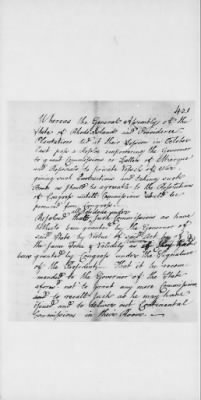 421
Whereas the General Assembly of the
State of Rhode Island and Providence
Plantations did at their Session in October
last pass a Resolve empowering the Governor
to grant Commissions or Letters of Marque
and Reprisals to private Vessels of War
giving such Instructions and taking such
Bonds as should be agreeable to the Resolutions
of Congress untill Commissions should be
from Congress
Resolved that such Commissions as have
hitherto been granted by the Governor of
said State by Virtue of said Act be of
the same Force & Validity as if they had
been granted by Congress under the Signature
of the President. That it be recom
mended to the Governor of the State
afores.d not to grant any more Commissions
and to recall such as he may have
issued and to deliver out Continental
Commissions in their Room.